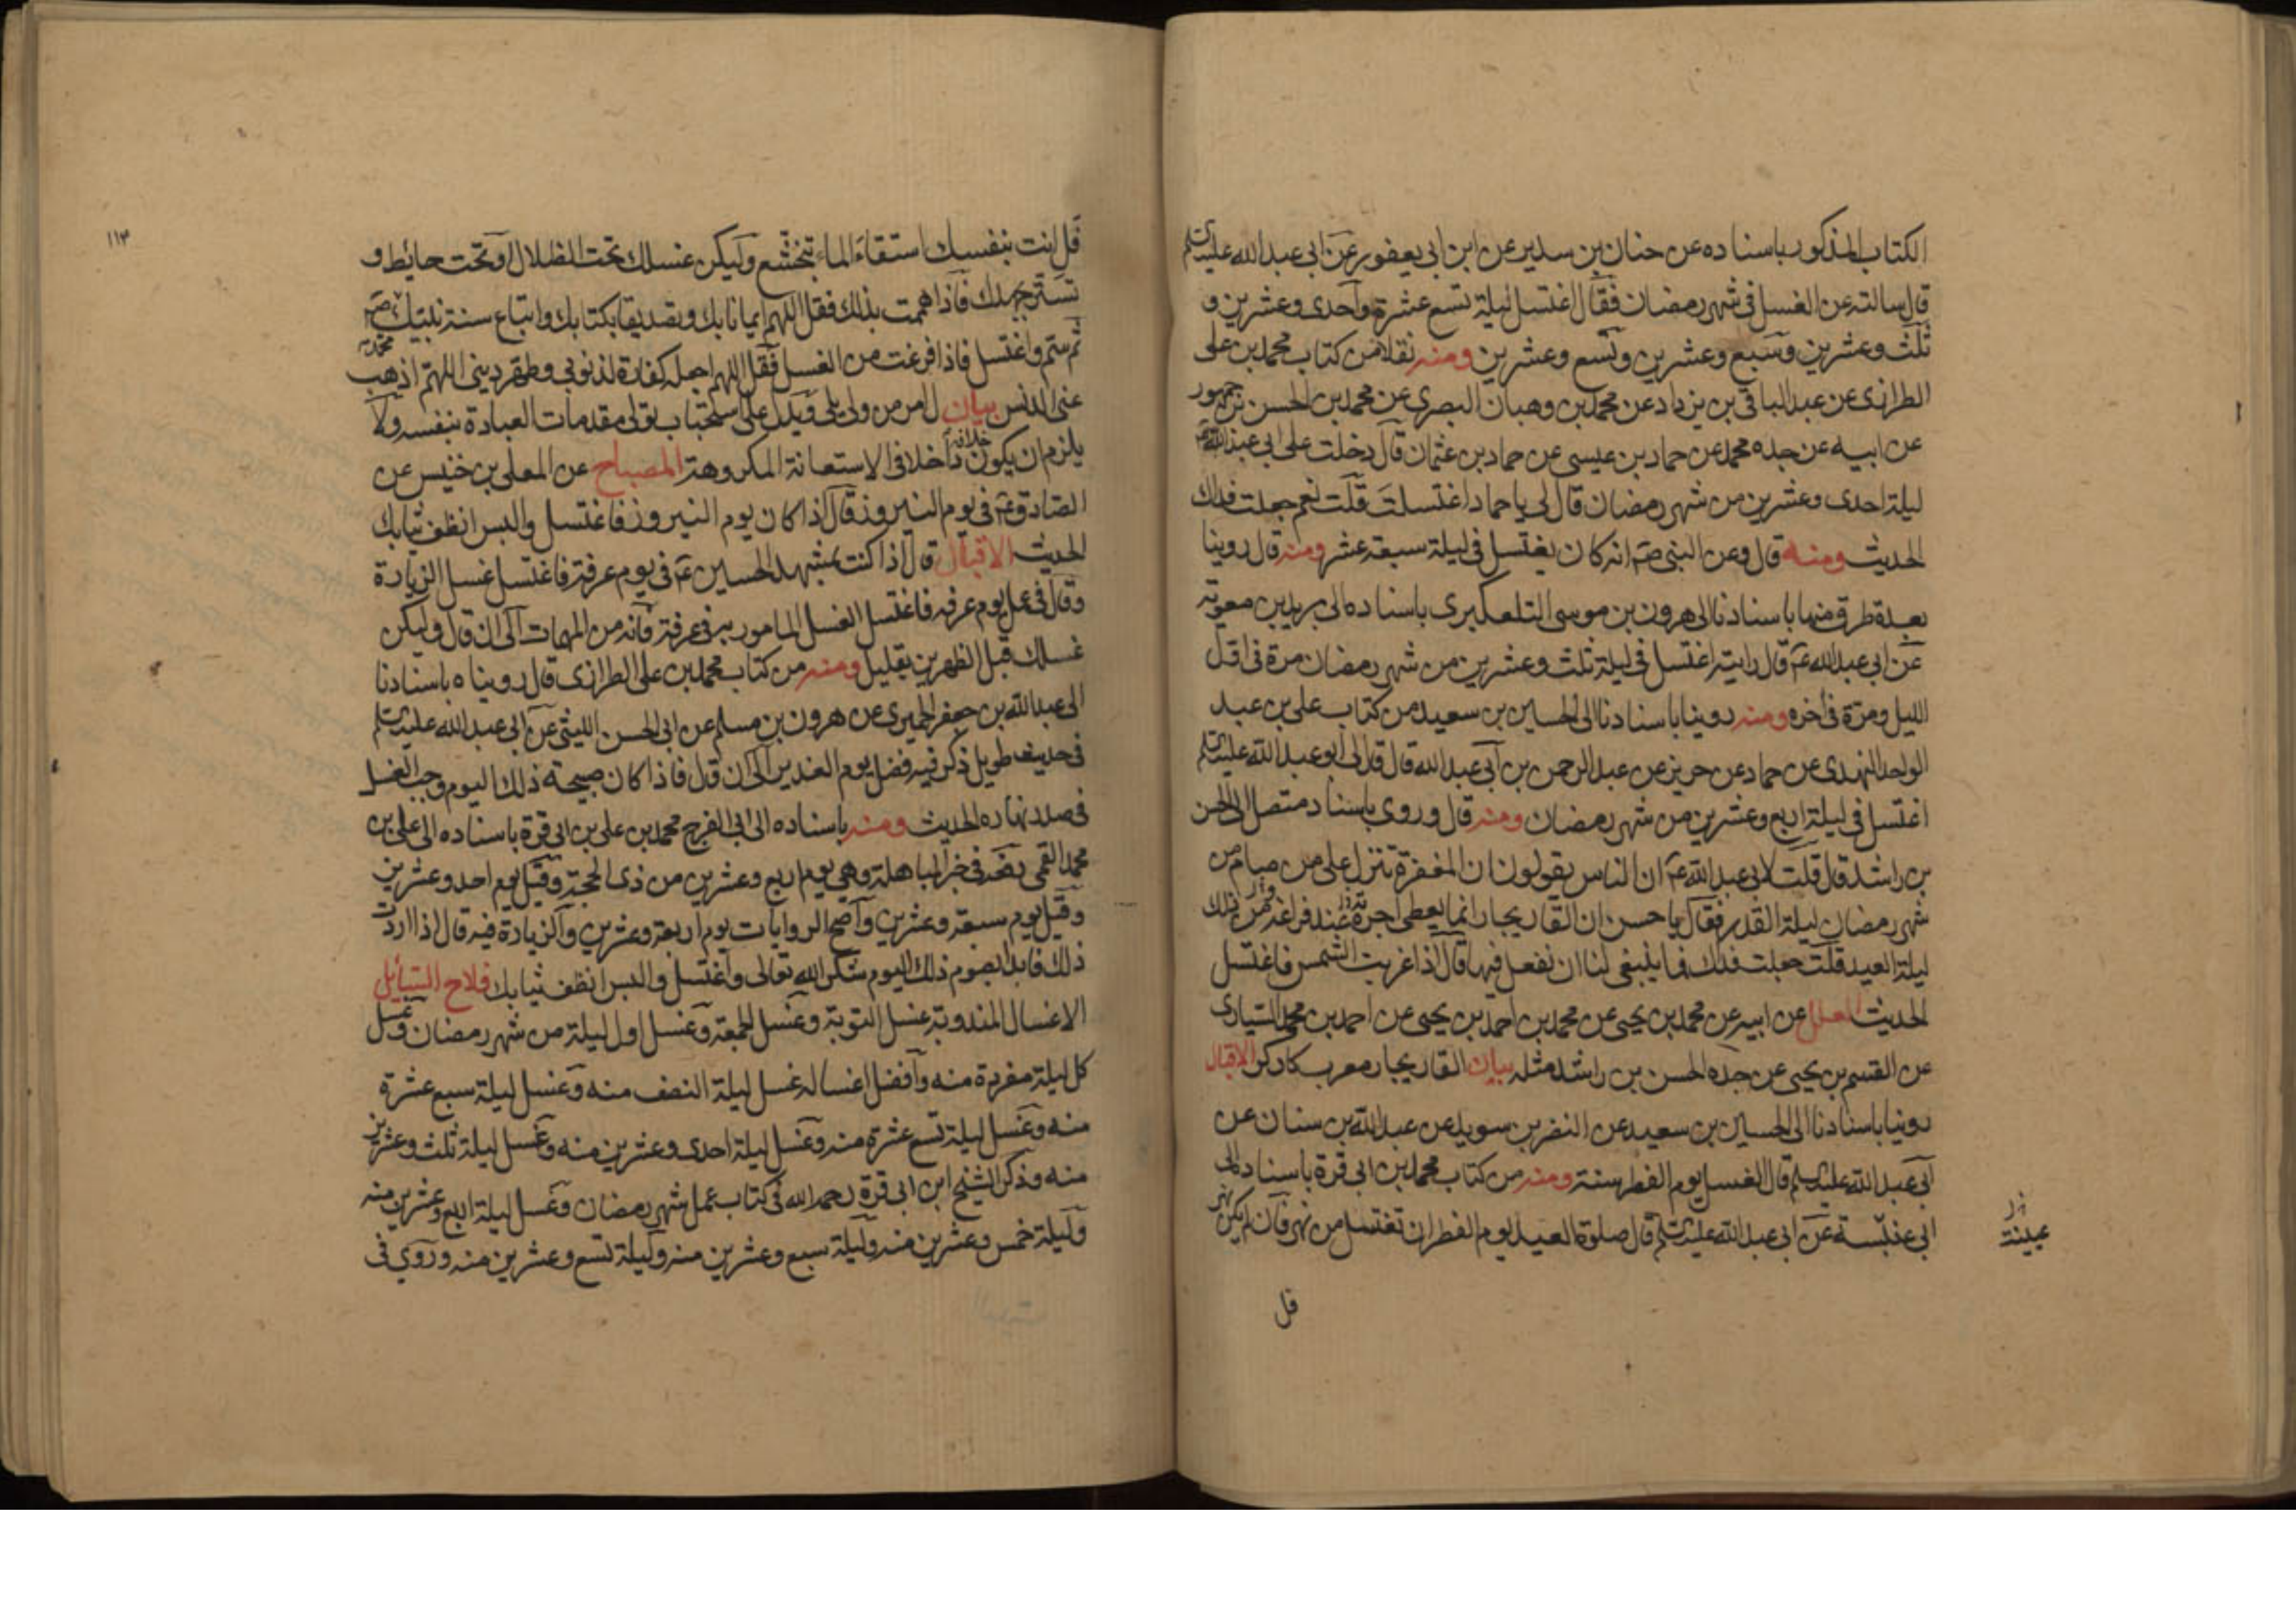 الكتاب المذكور باسناده عن حنان بن سدير عن ابن ابي يعفور عن ابي عبد الله عليه السلم
قال سالته عن الغسل في شهر رمضان فقال اغتسل ليلة تسع عشرة واحدى وعشرين و
ثلث وعشرين وسبع وعشرين وتسع وعشرين ومنه نقلا من كتاب محمد بن علي
الطرازي عن عبد الباقي بن يزداد عن محمد بن وهبان البصري عن محمد بن الحسن بن جمهور
عن ابيه عن جده محمد عن حماد بن عيسى عن حماد بن عثمان قال دخلت على ابي عبد الله ع
ليلة احدى وعشرين من شهر رمضان قال لي يا حماد اغتسلت قلت نعم جعلت فداك
الحديث ومنه قال وعن النبي ص انه كان يغتسل في ليلة سبعة عشر ومنه قال روينا
بعدة طرق منها باسنادنا الى هرون بن موسى التلعكبري باسناده الى بريد بن معوية
عن ابي عبد الله ع قال رايته اغتسل في ليلة ثلث وعشرين من شهر رمضان مرة في اول
الليل ومرة في اخره ومنه روينا باسنادنا الى الحسين بن سعيد من كتاب علي بن عبد
الواحد النهدي عن حماد عن حريز عن عبد الرحمن بن ابي عبد الله قال قال لي ابو عبد الله عليه السلم
اغتسل في ليلة اربع وعشرين من شهر رمضان ومنه قال وروي باسناد متصل الى الحسن
بن راشد قال قلت لابي عبد الله ع ان الناس يقولون ان المغفرة تنزل على من صام من
شهر رمضان ليلة القدر فقال يا حسن ان القاريجار انما يعطى اجرته عند فراغه ذلك
ليلة العيد قلت جعلت فداك فما ينبغي لنا ان نفعل فيها قال اذا غربت الشمس فاغتسل
الحديث العلل عن ابيه عن محمد بن يحيى عن محمد بن احمد بن يحيى عن احمد بن محمد السياري
عن القسم بن يحيى عن جده الحسن بن راشد مثله بيان القاريجار معرب كاركر الاقبال
روينا باسنادنا الى الحسين بن سعيد عن النضر بن سويد عن عبد الله بن سنان عن
ابي عبد الله عليه السلم قال الغسل يوم الفطر سنة ومنه من كتاب محمد بن ابي قرة باسناده الى
ابي عنبسة عن ابي عبد الله عليه السلم قال صلوة العيد يوم الفطر ان تغتسل من نهر فان لم يكن نهر
عيينة
قل
١١٣
قل انت بنفسك استقاء الماء بتخشع وليكن غسلك تحت الظلال او تحت حائط و
تستر بجهدك فاذا هممت بذلك فقل اللهم ايمانا بك وتصديقا بكتابك واتباع سنة نبيك محمد ص
ثم سم واغتسل فاذا فرغت من الغسل فقل اللهم اجعله كفارة لذنوبي وطهر ديني اللهم اذهب
عني الدنس بيان ل امر من ولي يلي ويدل على استحباب تولي مقدمات العبادة بنفسه ولا
يلزم ان يكون خلافه داخلا في الاستعانة المكروهة المصباح عن المعلى بن خنيس عن
الصادق ع في يوم النيروز قال اذا كان يوم النيروز فاغتسل والبس انظف ثيابك
الحديث الاقبال قال اذا كنت بمشهد الحسين ع في يوم عرفة فاغتسل غسل الزيارة
وقال في عمل يوم عرفه فاغتسل الغسل المامور به في عرفة فانه من المهمات الى ان قال وليكن
غسلك قبل الظهرين بقليل ومنه من كتاب محمد بن علي الطرازي قال رويناه باسنادنا
الى عبد الله بن جعفر الحميري عن هرون بن مسلم عن ابي الحسن الليثي عن ابي عبد الله عليه السلم
في حديث طويل ذكر فيه فضل يوم الغدير الى ان قال فاذا كان صبيحة ذلك اليوم وجب الغسل
في صدر نهاره الحديث ومنه باسناده الى ابي الفرج محمد بن علي بن ابي قرة باسناده الى علي بن
محمد القمي رفعه في خبر المباهلة وهي يوم اربع وعشرين من ذي الحجة وقيل يوم احد وعشرين
وقيل يوم سبعة وعشرين واصح الروايات يوم اربعة وعشرين والزيارة فيه قال اذا اردت
ذلك فابدا بصوم ذلك اليوم شكرا لله تعالى واغتسل والبس انظف ثيابك فلاح السائل
الاغسال المندوبة غسل التوبة وغسل الجمعة وغسل اول ليلة من شهر رمضان وغسل
كل ليلة مفردة منه وافضل اغساله غسل ليلة النصف منه وغسل ليلة سبع عشرة
منه وغسل ليلة تسع عشرة منه وغسل ليلة احدى وعشرين منه وغسل ليلة ثلث وعشرين
منه وذكر الشيخ ابن ابي قرة رحمه الله في كتاب عمل شهر رمضان وغسل ليلة اربع وعشرين منه
وليلة خمس وعشرين منه وليلة سبع وعشرين منه وليلة تسع وعشرين منه وروي في